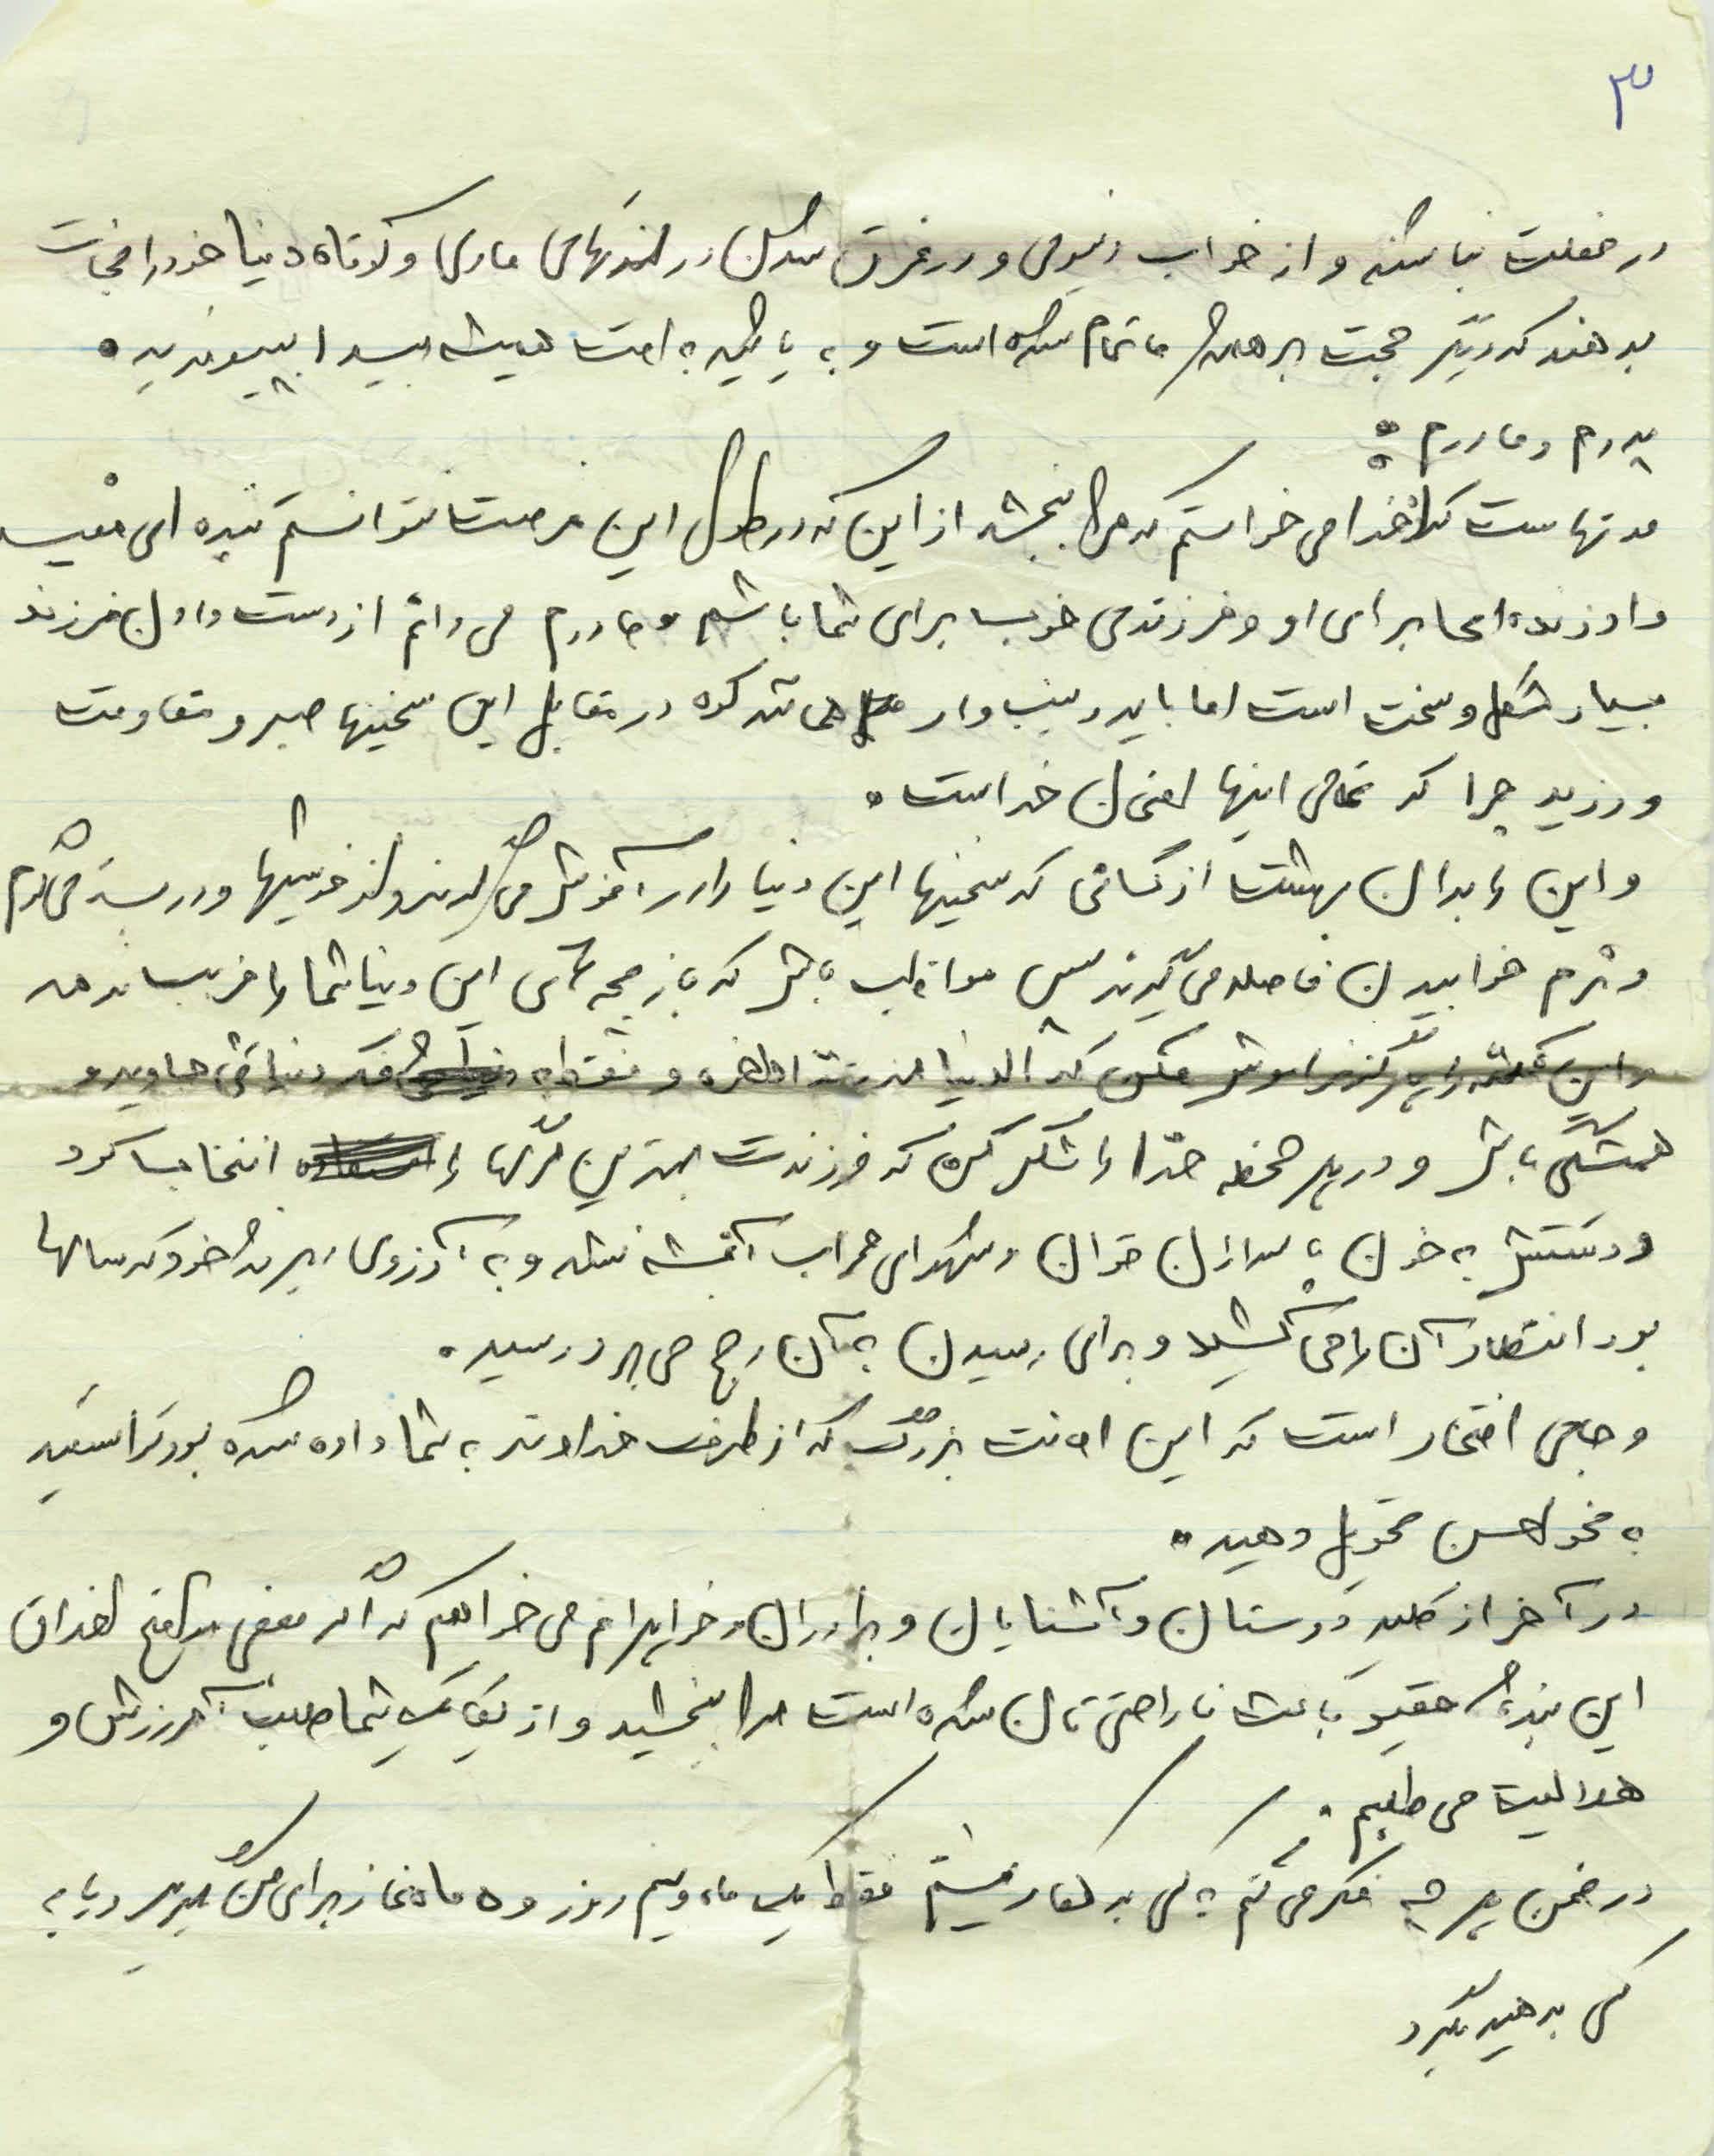 ۳
در غفلت نباشند و از خواب دنیوی و در غرق شدن در لذتهای مادی و کوتاه دنیا خود را نجات
بدهند که دیگر حجت بر همه ما تمام شده است و به یا به امت همیشه بپیوندید.
پدرم و مادرم:
مدتهاست که از خدا می خواستم که مرا ببخشد از این که در طول این فرصت نتوانستم بنده ای مفید
و ارزنده ای برای او و فرزندی خوب برای شما باشم مادرم می دانم از دست دادن فرزند
بسیار مشکل و سخت است اما باید زینب وار همانند کوه در مقابل این سختیها صبر و مقاومت
ورزید چرا که تمامی اینها امتحان خداست.
و این را بدان بهشت از کسانی که سختیها این دنیا را در آغوش می گیرند و از خوشیها و در بستر گرم
و نرم خوابیدن فاصله می گیرند پس مواظب باش که بازیچه های این دنیا شما را فریب ندهد
و این نکته را هرگز فراموش مکن که الدنیا مزرعة الاخره و فقط به فکر دنیائی جاوید و
همیشگی باش و در هر لحظه خدا را شکر کن که فرزندت بهترین مرگها را انتخاب کرد
و دستش به خون پاسداران قرآن و شهدای محراب آغشته نشد و به آرزوی دیرینه خود که سالها
بود انتظار آن را می کشید و برای رسیدن به آن رنج می برد رسید.
و جای افتخار است که این امانت بزرگ که از طرف خداوند به شما داده شده بود توانستید
به نحو احسن تحویل دهید.
در آخر از کلیه دوستان و آشنایان و برادران و خواهرانم می خواهم که اگر
این بنده حقیر باعث ناراحتی تان شده است مرا ببخشید و از یکایک شما طلب آمرزش و
هدایت می طلبم.
در ضمن هر چه فکر می کنم به کسی بدهکار نیستم فقط یک ماه و نیم روزه و ۵ ماه نماز برای من بگیرید و یا به
کسی بدهید بگیرد